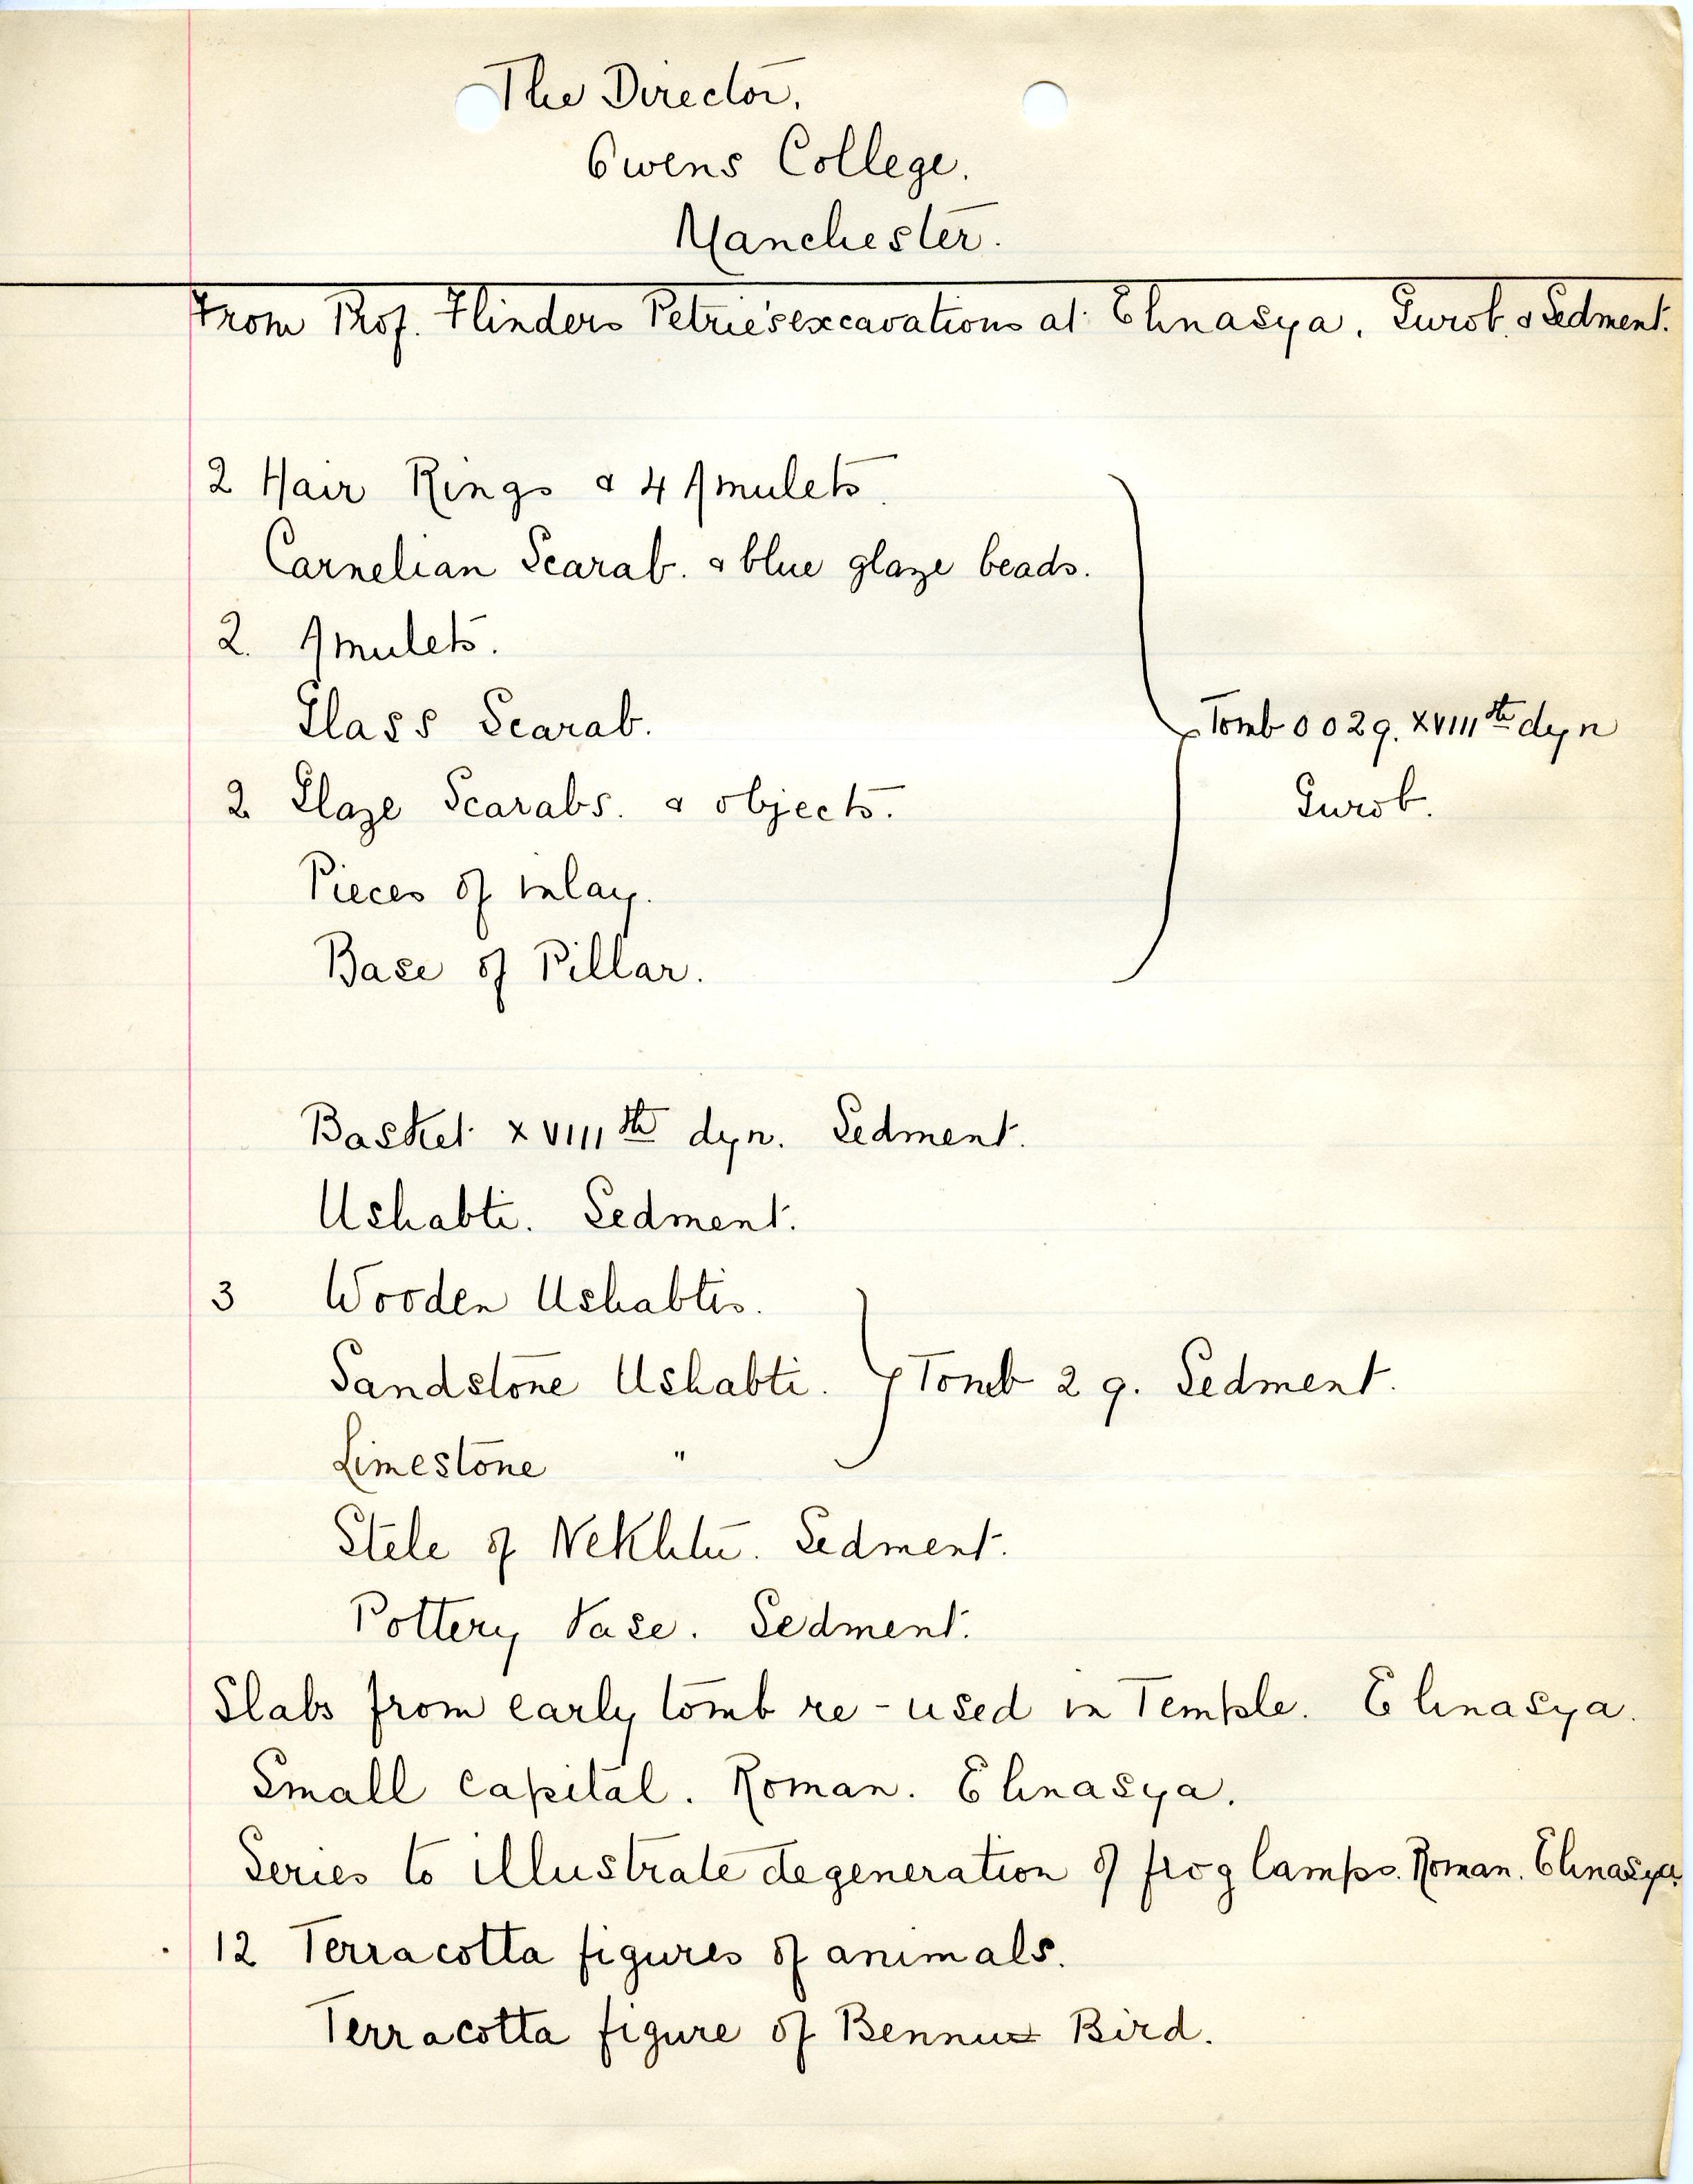 The Director.
Owens College.
Manchester.
From Prof. Flinders Petrie's excavations at Ehnasya, Gurob. & Sedment.
2 Hair Rings & 4 Amulets.
Carnelian Scarab. & blue glaze beads.
2. Amulets.
Glass Scarab.
Tomb 0029. XVIIIth dyn
2 Glaze Scarabs. & objects.
Gurob.
Pieces of inlay.
Base of Pillar.
Basket XVIIIth dyn. Sedment.
Ushabti. Sedment.
3 Wooden Ushabtis.
Sandstone Ushabti. Tomb 29. Sedment.
Limestone "
Stele of Nekhtu. Sedment.
Pottery Vase. Sedment.
Slabs from early tomb re-used in Temple. Ehnasya.
Small capital. Roman. Ehnasya.
Series to illustrate degeneration of frog lamps. Roman. Ehnasya.
12 Terracotta figures of animals.
Terracotta figure of Bennu Bird.